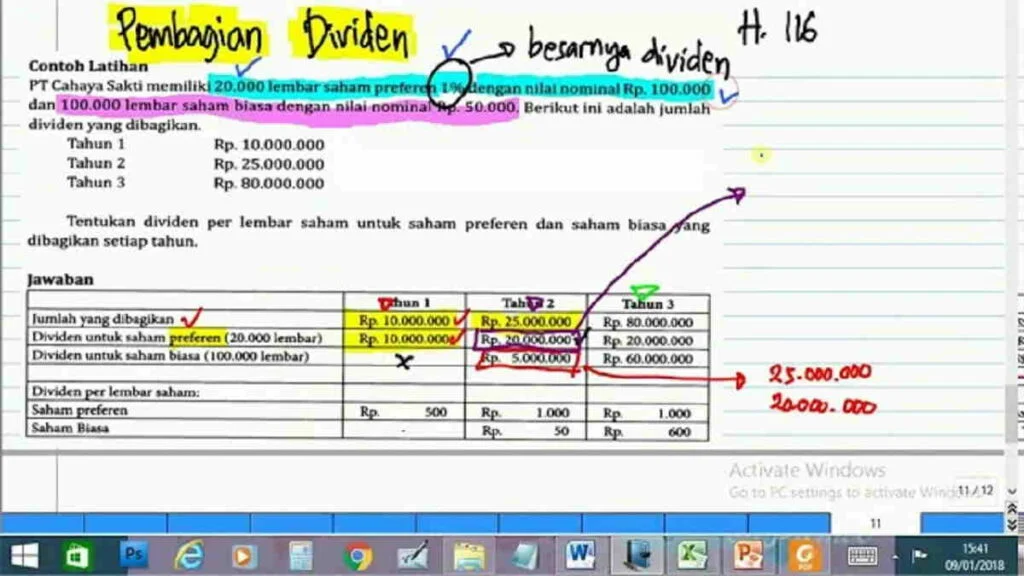 Pembagian Dividen
H. 116
besarnya dividen
Contoh Latihan
PT Cahaya Sakti memiliki 20.000 lembar saham preferen 1% dengan nilai nominal Rp. 100.000
dan 100.000 lembar saham biasa dengan nilai nominal Rp. 50.000. Berikut ini adalah jumlah
dividen yang dibagikan.
Tahun 1 Rp. 10.000.000
Tahun 2 Rp. 25.000.000
Tahun 3 Rp. 80.000.000
Tentukan dividen per lembar saham untuk saham preferen dan saham biasa yang
dibagikan setiap tahun.
Jawaban
Tahun 1 Tahun 2 Tahun 3
Jumlah yang dibagikan Rp. 10.000.000 Rp. 25.000.000 Rp. 80.000.000
Dividen untuk saham preferen (20.000 lembar) Rp. 10.000.000 Rp. 20.000.000 Rp. 20.000.000
Dividen untuk saham biasa (100.000 lembar) x Rp. 5.000.000 Rp. 60.000.000
25.000.000
20.000.000
Dividen per lembar saham:
Saham preferen Rp. 500 Rp. 1.000 Rp. 1.000
Saham Biasa - Rp. 50 Rp. 600
Activate Windows
Go to PC settings to activate
11 / 12
11
Ps
W
X
P
G
PDF
15:41
09/01/2018